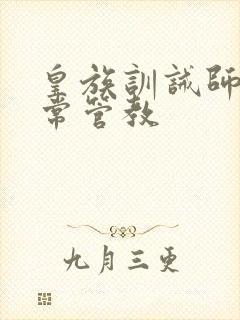 皇族訓誡師
常管教
九月三更